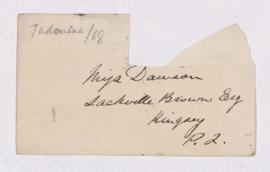 Tadousac/68
Miss Dawson
Sackville Brown Esq
Kingsey
P. Q.